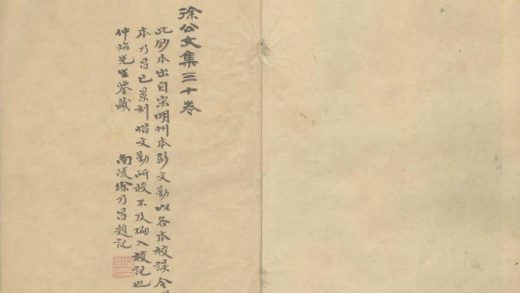 徐公文集三十卷
此鈔本出自宋明州本彭文勤以各本校誤今
本乃昌已景刊惜文勤所校不及入校記也
仲炤先生鑒藏 南陵徐乃昌題記